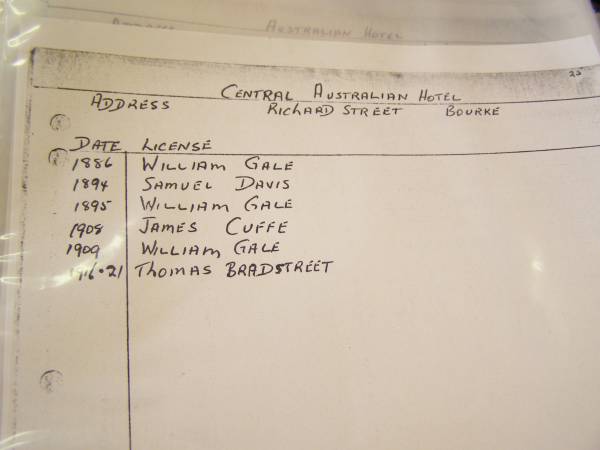 AUSTRALIAN HOTEL
23
CENTRAL AUSTRALIAN HOTEL
ADDRESS RICHARD STREET BOURKE
DATE LICENSE
1886 WILLIAM GALE
1894 SAMUEL DAVIS
1895 WILLIAM GALE
1908 JAMES CUFFE
1909 WILLIAM GALE
1916.21 THOMAS BRADSTREET